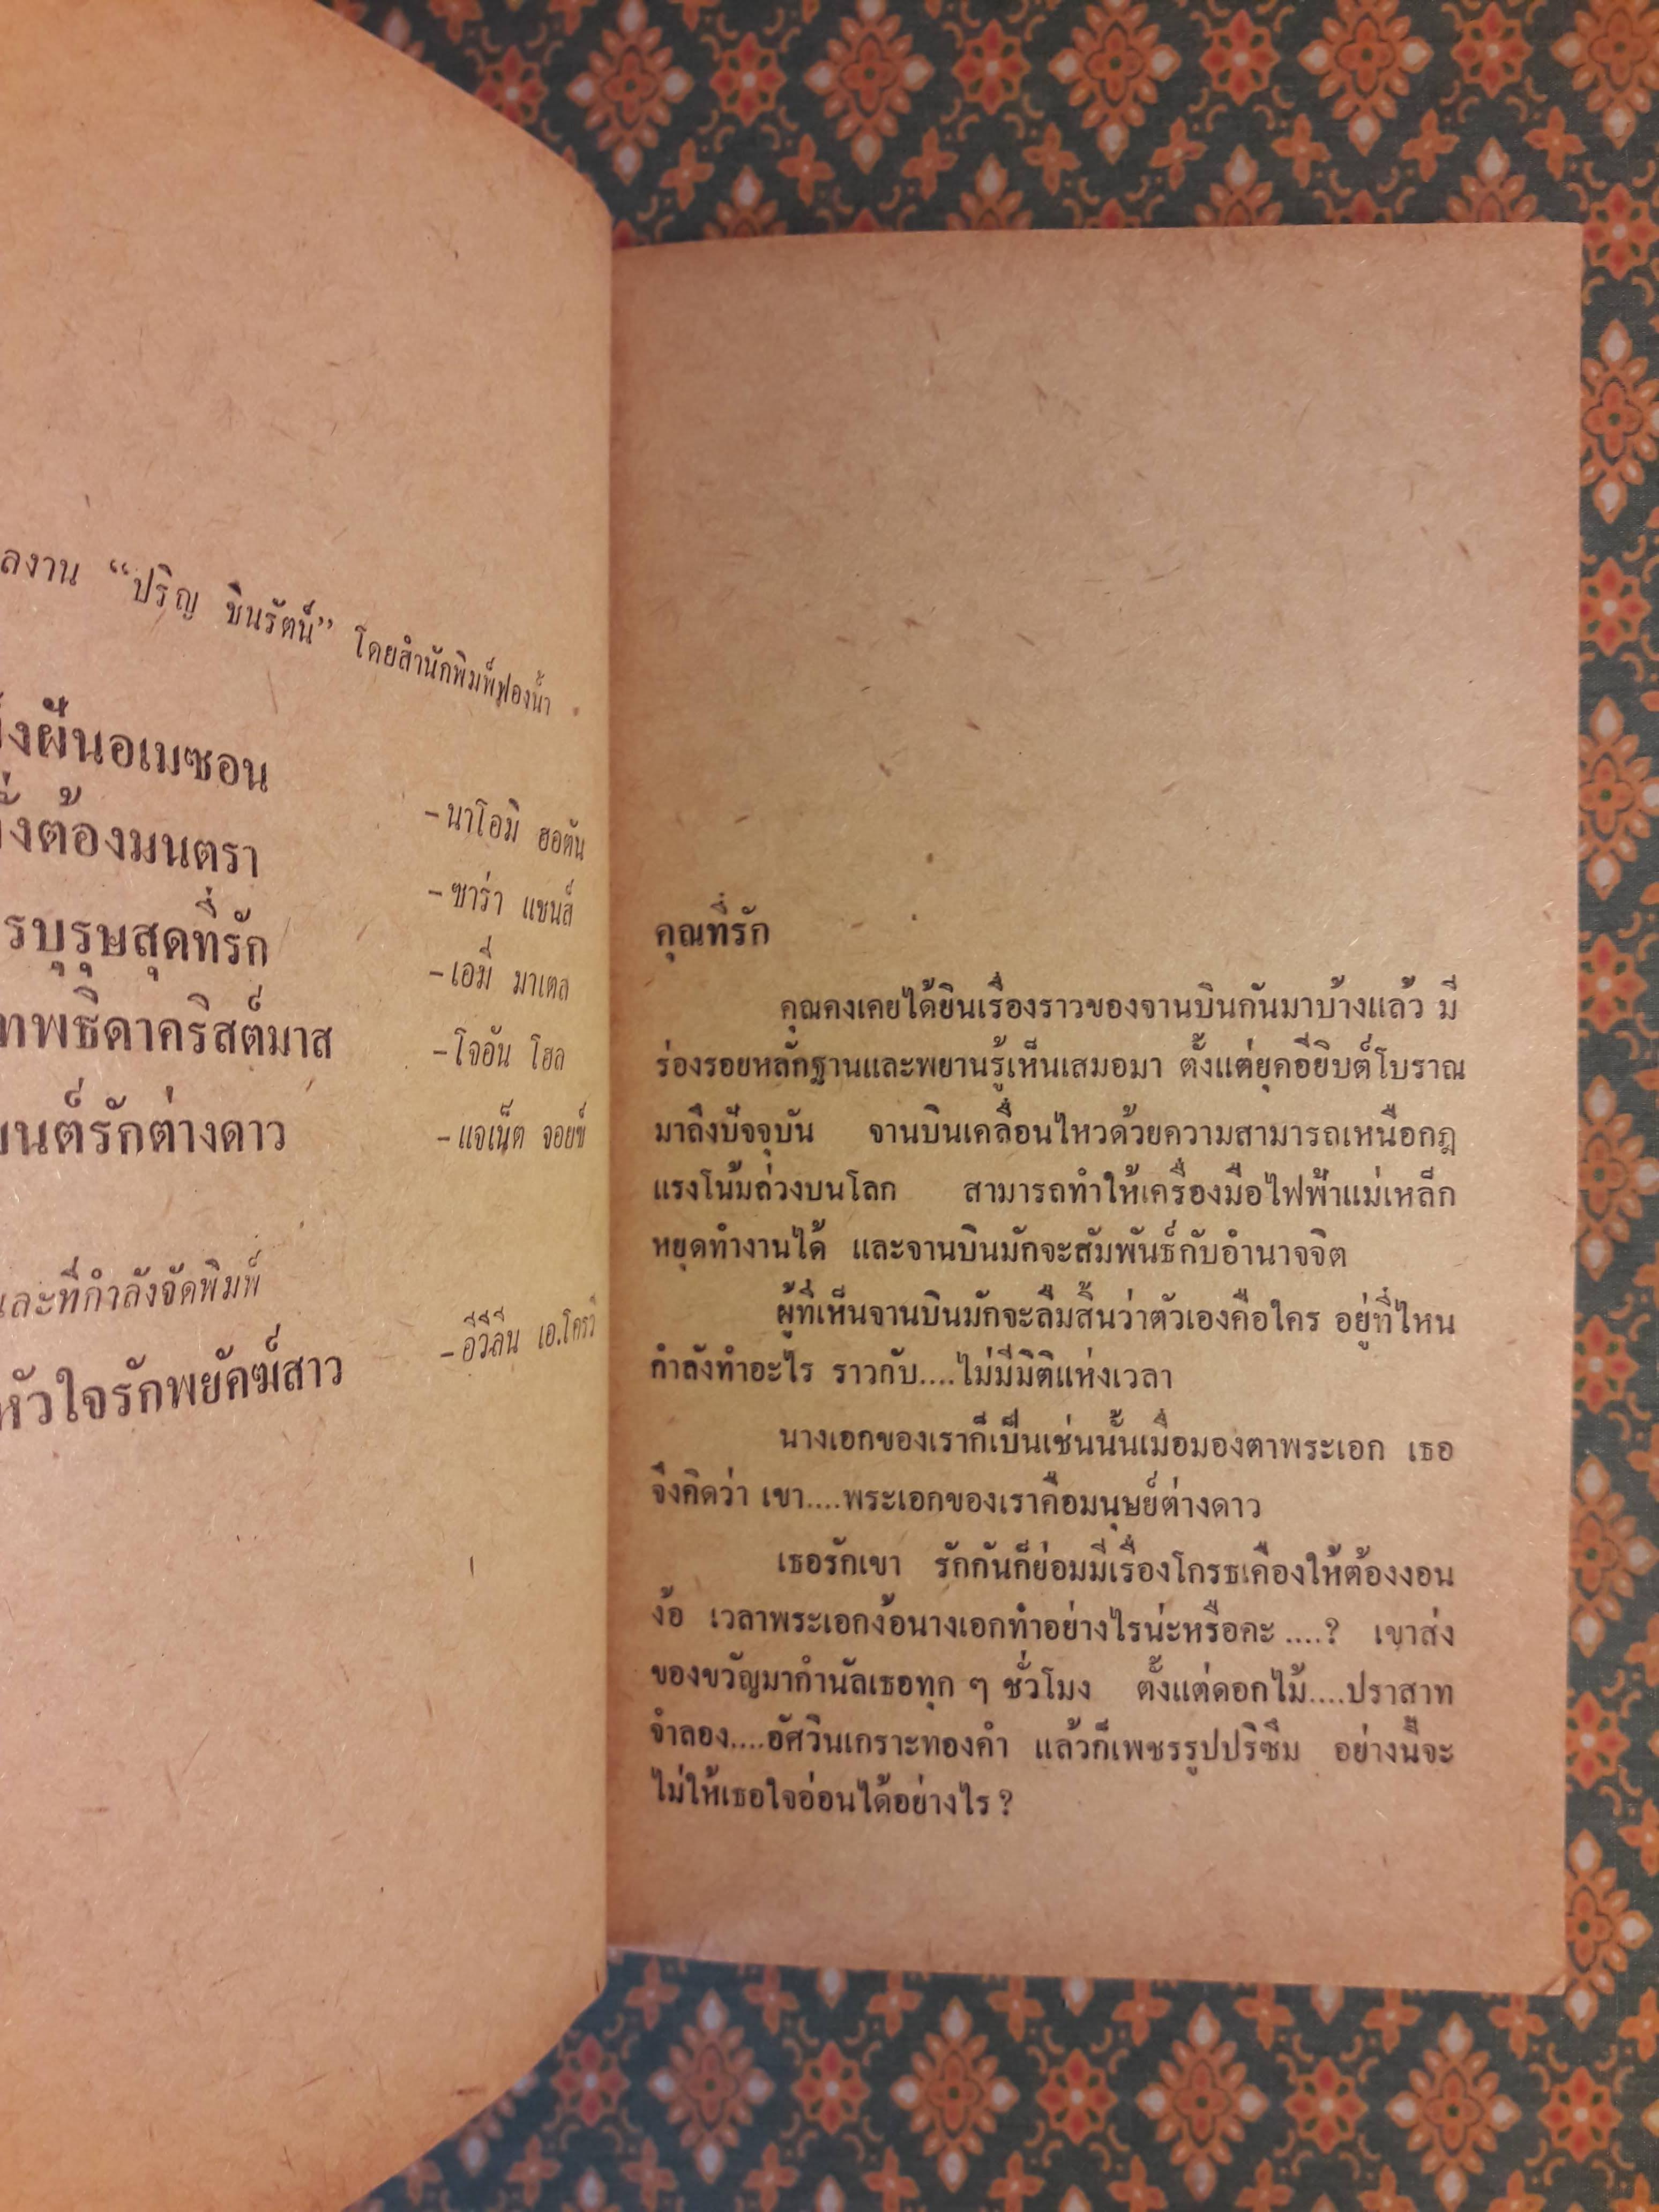 ลงาน “ปริญ ชินรัตน์” โดยสำนักพิมพ์ฟองน้ำ
งฝันอเมซอน -นาโอมิ ฮอตัน
งต้องมนตรา -ซาร่า แชนส์
รบุรุษสุดที่รัก -เอมี่ มาเตล
ทพธิดาคริสต์มาส -โจอัน โฮล
มนต์รักต่างดาว -แจเน็ต จอยซ์
และที่กำลังจัดพิมพ์
หัวใจรักพยัคฆ์สาว -อีวีลีน เอ.โครว์
คุณที่รัก
คุณคงเคยได้ยินเรื่องราวของจานบินกันมาบ้างแล้ว มี
ร่องรอยหลักฐานและพยานรู้เห็นเสมอมา ตั้งแต่ยุคอียิบต์โบราณ
มาถึงปัจจุบัน จานบินเคลื่อนไหวด้วยความสามารถเหนือกฎ
แรงโน้มถ่วงบนโลก สามารถทำให้เครื่องมือไฟฟ้าแม่เหล็ก
หยุดทำงานได้ และจานบินมักจะสัมพันธ์กับอำนาจจิต
ผู้ที่เห็นจานบินมักจะลืมสิ้นว่าตัวเองคือใคร อยู่ที่ไหน
กำลังทำอะไร ราวกับ....ไม่มีมิติแห่งเวลา
นางเอกของเราก็เป็นเช่นนั้นเมื่อมองตาพระเอก เธอ
จึงคิดว่า เขา....พระเอกของเราคือมนุษย์ต่างดาว
เธอรักเขา รักกันก็ย่อมมีเรื่องโกรธเคืองให้ต้องงอน
ง้อ เวลาพระเอกง้อนางเอกทำอย่างไรน่ะหรือคะ ....? เขาส่ง
ของขวัญมากำนัลเธอทุก ๆ ชั่วโมง ตั้งแต่ดอกไม้....ปราสาท
จำลอง....อัศวินเกราะทองคำ แล้วก็เพชรรูปปริซึม อย่างนี้จะ
ไม่ให้เธอใจอ่อนได้อย่างไร ?